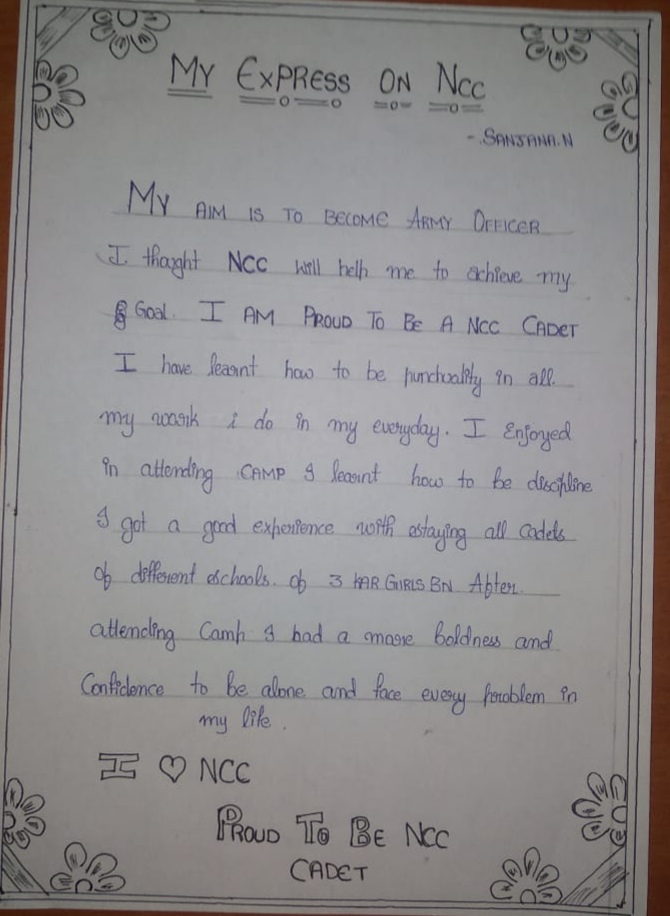 MY EXPRESS ON NCC
- SANJANA.N
MY AIM IS TO BECOME ARMY OFFICER
I thaght NCC will help me to achieve my
Goal. I AM PROUD TO BE A NCC CADET
I have learnt how to be punchuality in all
my work i do in my everyday. I Enjoyed
in attending CAMP I learnt how to be discipline
I got a good experience with staying all Cadets
of different schools. of 3 KAR.GIRLS BN After
attending Camp I had a more boldness and
Confidence to be alone and face every problem in
my life.
I ♡ NCC
PROUD TO BE NCC
CADET